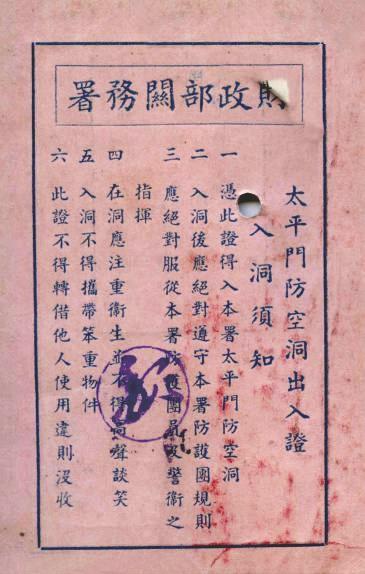 財政部關務署
太平門防空洞出入證
入洞須知
一 憑此證得入本署太平門防空洞
二 入洞後應絕對遵守本署防護團規則
三 應絕對服從本署防護團員及警衛之
指揮
四 在洞應注重衛生並不得高聲談笑
五 入洞不得攜帶笨重物件
六 此證不得轉借他人使用違則沒收